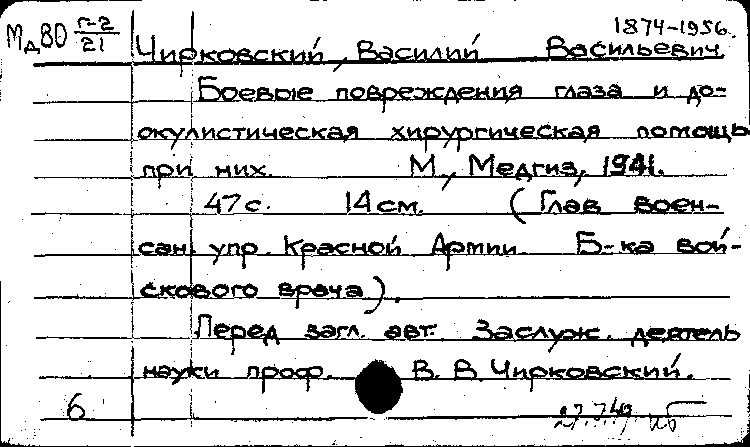 1874-1956.
Мд80 г-2/21
Чирковский, Василий Васильевич.
Боевые повреждения глаза и до-
окулистическая хирургическая помощь
при них. М., Медгиз, 1941.
47 с. 14 см. (Глав. воен-
сан. упр. Красной Армии. Б-ка вой-
скового врача).
Перед загл. авт. Заслуж. деятель
науки проф. В. В. Чирковский.
6